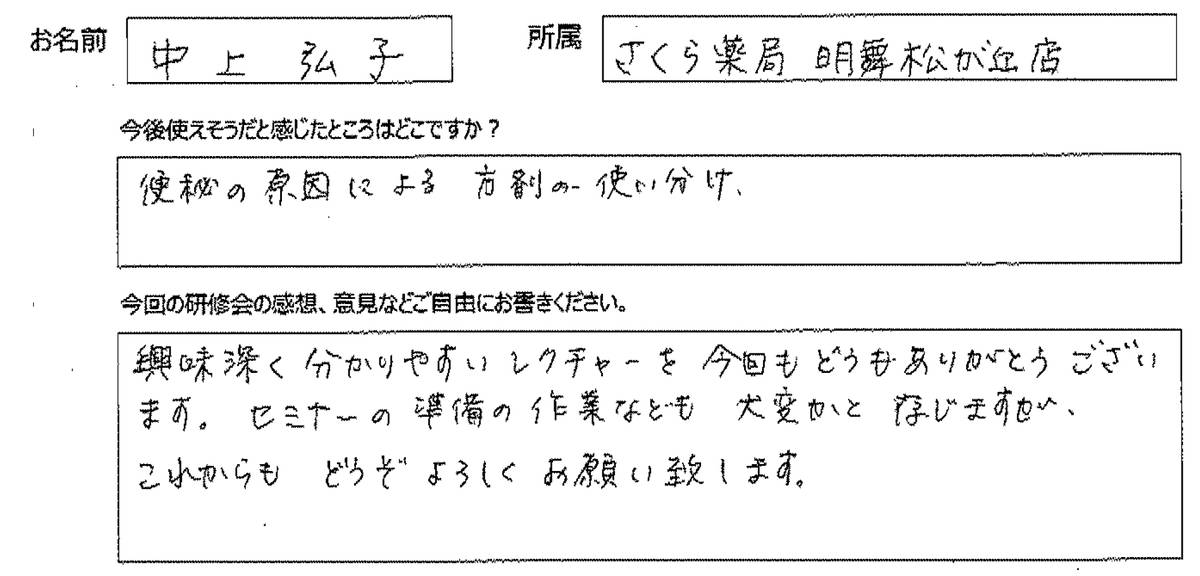 お名前 中上 弘子 所属 さくら薬局 明舞松が丘店
今後使えそうだと感じたところはどこですか？
便秘の原因による 方剤の使い分け、
今回の研修会の感想、意見などご自由にお書きください。
興味深く分かりやすいレクチャーを 今回もどうもありがとう ござい
ます。セミナーの準備の作業なども 大変かと 存じますが、
これからも どうぞよろしくお願い致します。